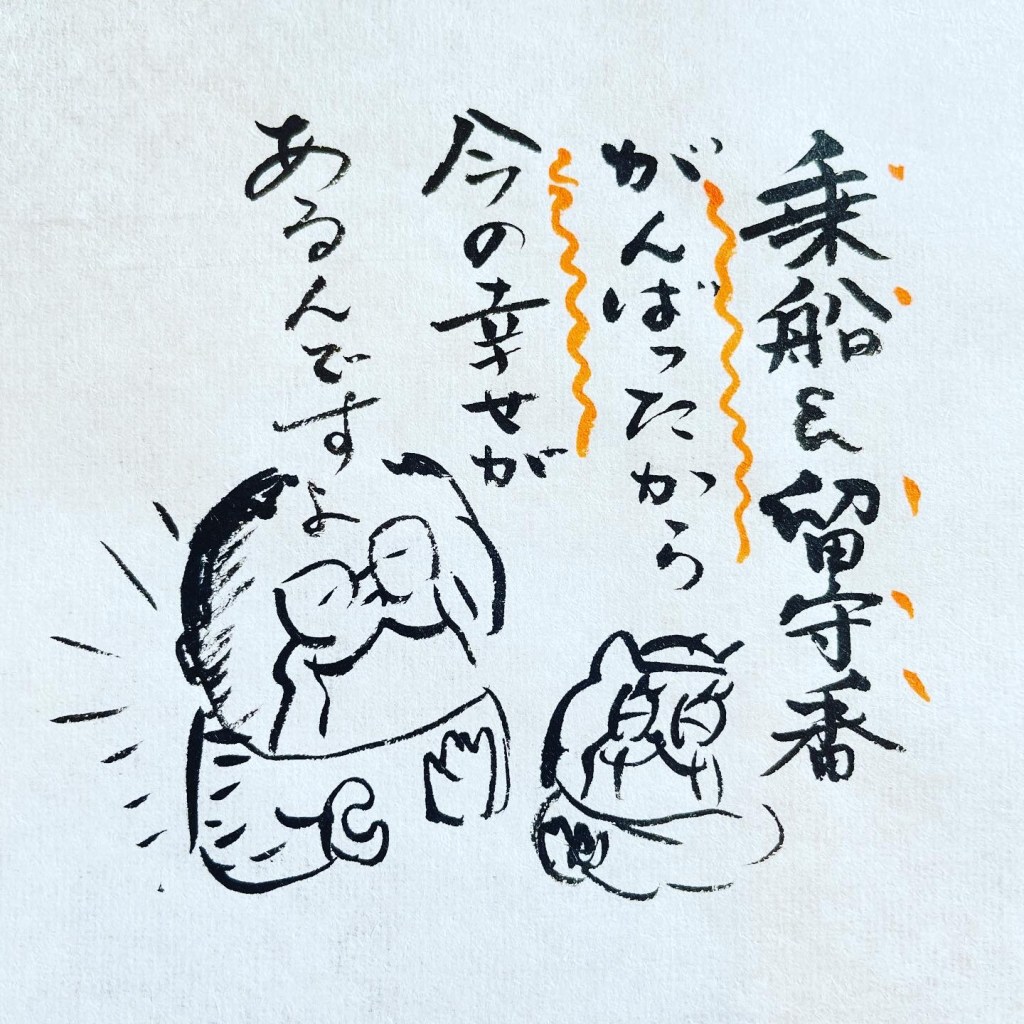 乗船と留守番
がんばったから
今の幸せが
あるんですよ